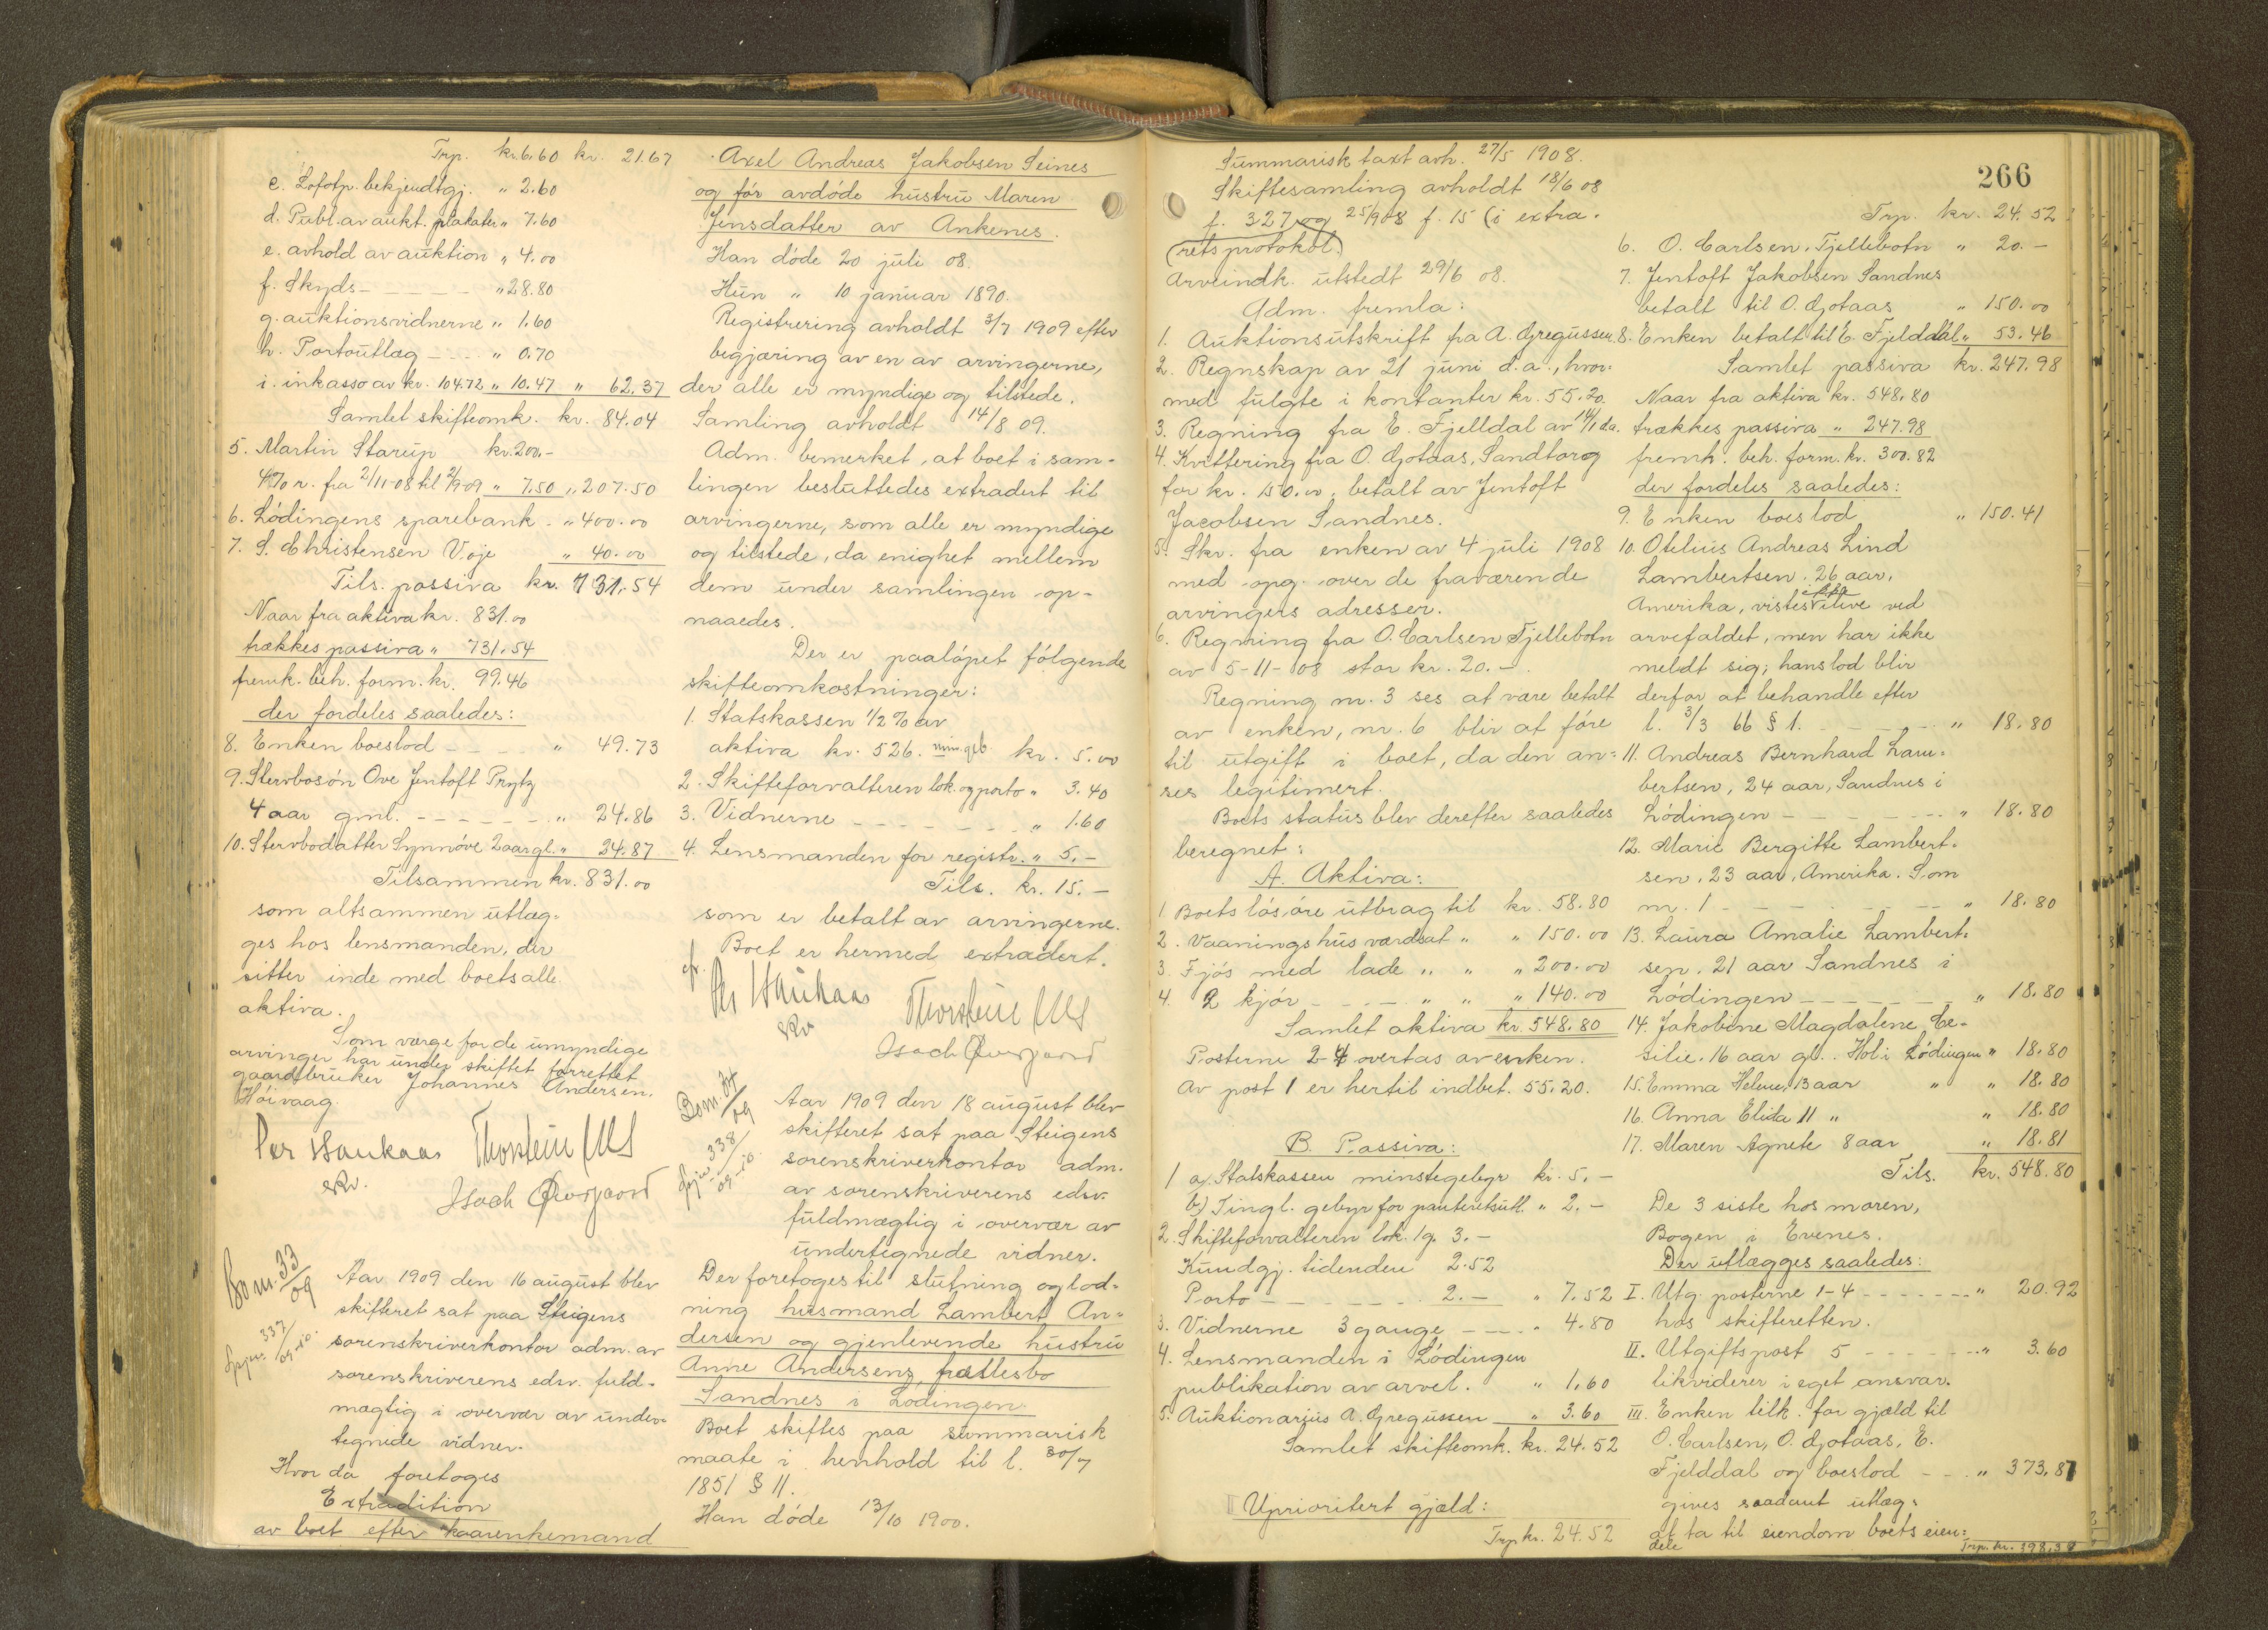 Trp. kr. 6.60 kr. 21.67
c. Lofotp. bekjendtgj. " 2.60
d. Publ. av aukt. plakater " 7.60
e. avhold av auktion " 4.00
f. Skyds - - - - " 28.80
g. auktionsvidnerne " 1.60
h. Portoutlæg - - - - " 0.70
i. inkasso av kr. 104.72 " 10.47 " 62.37
Samlet skifteomk. kr. 84.04
5. Martin Starup kr. 200.-
4% r. fra 2/11-08 til 2/9-09 " 7.50 " 207.50
6. Lødingens sparebank - " 400.00
7. S. Christensen Voje " 40.00
Tils. passiva kr. 731.54
Naar fra aktiva kr. 831.00
trækkes passiva " 731.54
fremk. beh. form. kr. 99.46
der fordeles saaledes:
8. Enken boeslod - - - - " 49.73
9. Stervbosøn Ove Jentoft Prytz
4 aar gml. - - - - - - " 24.86
10. Stervbodatter Synnøve 2 aar gl. " 24.87
Tilsammen kr. 831.00
som altsammen utlæg-
ges hos lensmanden, der
sitter inde med boets alle
aktiva.
Som værge for de umyndige
arvinger har under skiftet forrettet
gaardbruker Johannes Andersen.
Høivaag.
Per Haukaas
skr.
Isach Øvergaard
Bo m. 33/09
337/09-10.
Aar 1909 den 16 august blev
skifteret sat paa Steigens
sorenskriverkontor adm. av
sorenskriverens edsv. fuld-
mægtig i overvær av under-
tegnede vidner.
Hvor da foretoges
Extradition
av boet efter kaarenkemand
Axel Andreas Jakobsen Seines
og før avdøde hustru Maren
Jensdatter av Ankenes.
Han døde 20 juli 08.
Hun " 10 januar 1890.
Registrering avholdt 3/7 1909 efter
begjæring av en av arvingerne,
der alle er myndige og tilstede.
Samling avholdt 14/8 09.
Adm. bemerket, at boet i sam-
lingen besluttedes extradert til
arvingerne, som alle er myndige
og tilstede, da enighet mellem
dem under samlingen op-
naaedes.
Der er paaløpet følgende
skifteomkostninger:
1. Statskassen 1/2 % av
aktiva kr. 526. min. geb. kr. 5.00
2. Skifteforvalteren lok. og porto " 3.40
3. Vidnerne - - - - - - - " 1.60
4. Lensmanden for registr. " 5.-
Tils. kr. 15.-
som er betalt av arvingerne.
Boet er hermed extradert.
Per Haukaas
skr
Isach Øvergaard
Bo m. 34/09
338/09-10.
Aar 1909 den 18 august blev
skifteret sat paa Steigens
sorenskriverkontor adm.
av sorenskriverens edsv.
fuldmægtig i overvær av
undertegnede vidner.
Der foretoges til slutning og lod-
ning husmand Lambert An-
dersen og gjenlevende hustru
Anne Andersens fællesbo
Sandnes i Lødingen.
Boet skiftes paa summarisk
maate i henhold til l. 30/7
1851 § 11.
Han døde 13/10 1900.
266
Summarisk taxt avh. 27/5 1908.
Skiftesamling avholdt 18/6 08
f. 327 og 25/9 08 f. 15 (i extra-
(retsprotokol)
Arveindk. utstedt 29/6 08.
Adm. fremla:
1. Auktionsutskrift fra A. Gregussen.
2. Regnskap av 21 juni d.a., hvor-
med fulgte i kontanter kr. 55.20.
3. Regning fra E. Fjelldal av 14/1 d.a.
4. Kvittering fra O. Gotaas, Sandtorg
for kr. 150.00, betalt av Jentoft
Jacobsen Sandnes.
5. Skr. fra enken av 4 juli 1908
med opg. over de fraværende
arvingers adresser.
6. Regning fra O. Carlsen Fjellebotn
av 5-11-08 stor kr. 20.-.
Regning nr. 3 ses at være betalt
av enken, nr. 6 blir at føre
til utgift i boet, da den an-
ses legitimert.
Boets status blev derefter saaledes
beregnet:
A. Aktiva:
1. Boets løsøre utbragt til kr. 58.80
2. Vaaningshus værdsat " " 150.00
3. Fjøs med lade " " " 200.00
4. 2 kjør - - - - " " " 140.00
Samlet aktiva kr. 548.80
Posterne 2-4 overtas av enken.
Av post 1 er hertil indbet. 55.20.
B. Passiva:
1 a) Statskassen minstegebyr kr. 5.-
b) Tingl. gebyr for panteretsutl. " 2.-
2. Skifteforvalteren lok. 1 g. 3.-
Kundgj. tidenden 2.52
Porto - - - - - - 2.- " 7.52
3. Vidnerne 3 gange - - - " 4.80
4. Lensmanden i Lødingen
publikation av arvel. " 1.60
5. Auktionarius A. Gregussen " 3.60
Samlet skifteomk. kr. 24.52
Uprioritert gjæld:
Trp kr. 24.52
Trp. kr. 24.52
6. O. Carlsen, Fjellebotn " 20.-
7. Jentoft Jakobsen Sandnes
betalt til O. Gotaas " 150.00
8. Enken betalt til E. Fjelddal " 53.46
Samlet passiva kr. 247.98
Naar fra aktiva kr. 548.80
trækkes passiva " 247.98
fremk. beh. form. kr. 300.82
der fordeles saaledes:
9. Enken boeslod " 150.41
10. Otelius Andreas Lind
Lambertsen. 26 aar,
Amerika, vistes ikke ilive ved
arvefaldet, men har ikke
meldt sig; hans lod blir
derfor at behandle efter
l. 3/3 66 § 1. - - - - - - " 18.80
11. Andreas Bernhard Lam-
bertsen, 24 aar, Sandnes i
Lødingen - - - - - - - " 18.80
12. Marie Bergitte Lambert-
sen, 23 aar, Amerika. Som
nr. 1 - - - - - - - - " 18.80
13. Laura Amalie Lambert-
sen, 21 aar Sandnes i
Lødingen - - - - - - - " 18.80
14. Jakobine Magdalene Ce-
silie. 16 aar gl. Hol i Lødingen " 18.80
15. Emma Helene, 13 aar " " 18.80
16. Anna Elida 11 " " 18.80
17. Maren Agnete 8 aar " 18.81
Tils. kr. 548.80
De 3 siste hos moren,
Bogen i Evenes.
Der utlægges saaledes:
I. Utg. posterne 1-4 - - - - - - " 20.92
hos skifteretten.
II. Utgiftspost 5 - - - - - - " 3.60
likviderer i eget ansvar.
III. Enken tilk. for gjæld til
O. Carlsen, O. Gotaas, E.
Fjelddal og boeslod - - - " 373.87
gives saadant utlæg:
at ta til eiendom boets eien-
dele
Trp. kr. 398.39